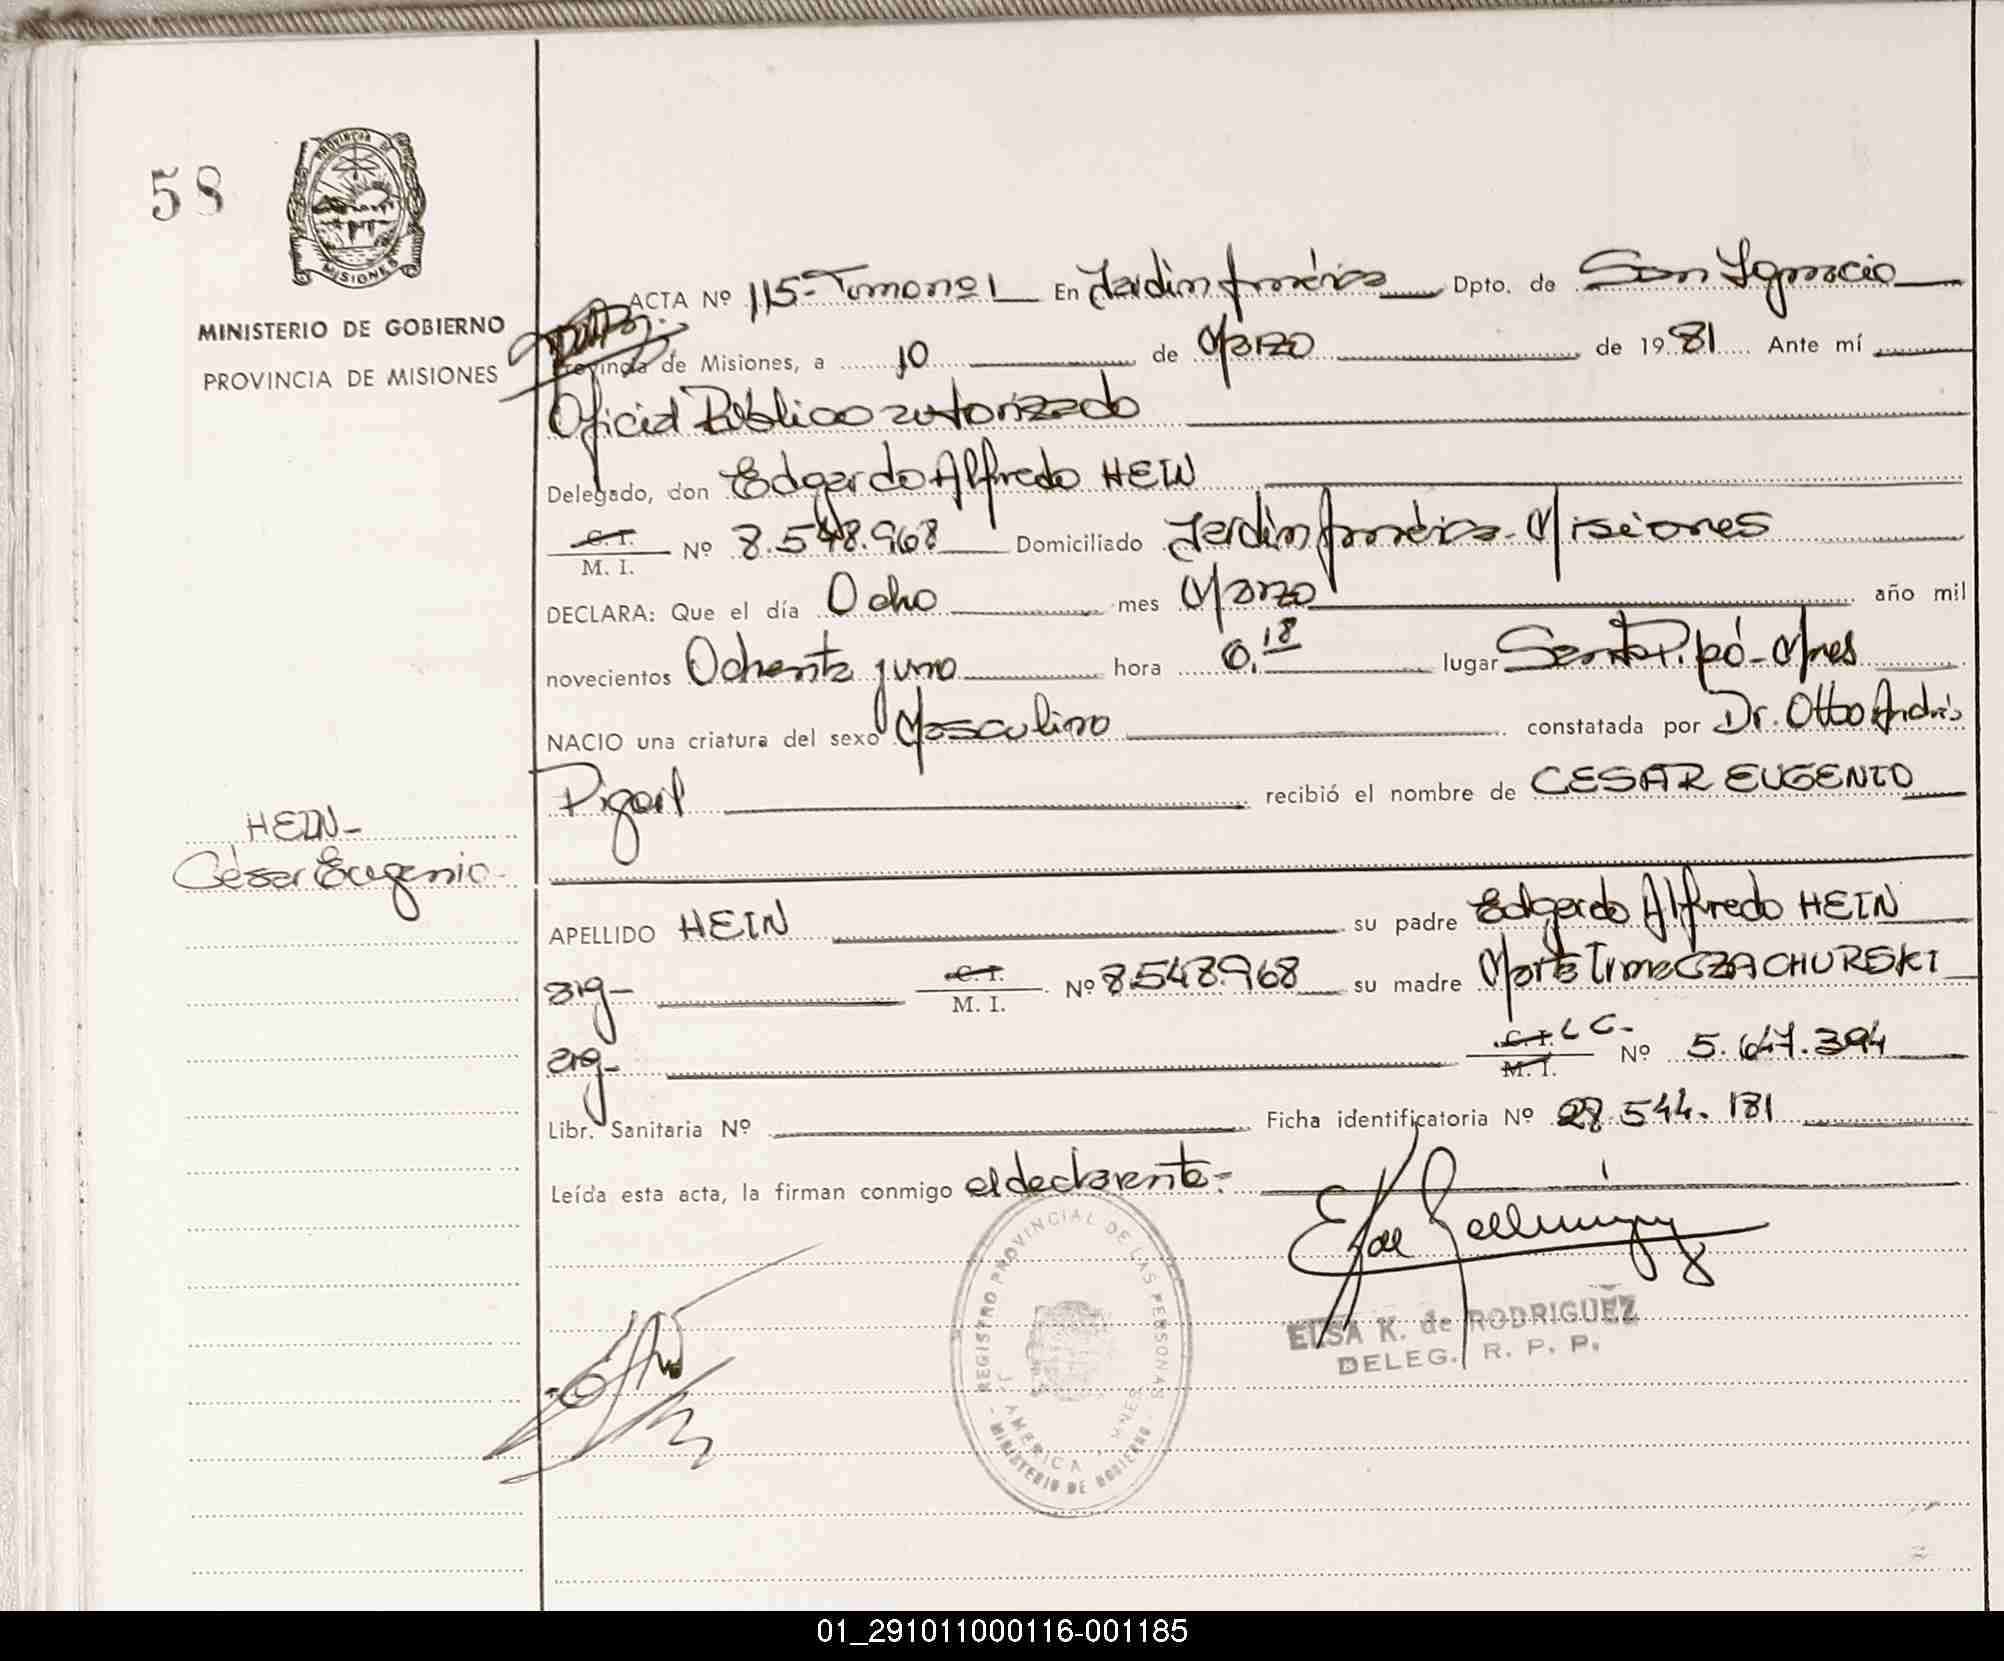 58
PROVINCIA DE
MISIONES
MINISTERIO DE GOBIERNO
PROVINCIA DE MISIONES
ACTA Nº 115- Tomo nº 1 En Jardín América Dpto. de San Ignacio
Provincia de Misiones, a 10 de Marzo de 1981 Ante mí
Oficial Público autorizado
Delegado, don Edgardo Alfredo HEIN
C. I.
M. I. Nº 8.548.968 Domiciliado Jardín América- Misiones
DECLARA: Que el día Ocho mes Marzo año mil
novecientos Ochenta y uno hora 0.18 lugar Santo Pipó- Mnes
NACIO una criatura del sexo Masculino constatada por Dr. Otto Andrés
recibió el nombre de CESAR EUGENIO
HEIN-
César Eugenio-
APELLIDO HEIN su padre Edgardo Alfredo HEIN
arg- C. I.
M. I. Nº 8.548.968 su madre Marta Irma CZACHURSKI
arg- C. I. L C.-
M. I. Nº 5.647.394
Libr. Sanitaria Nº Ficha identificatoria Nº 28.544.181
Leída esta acta, la firman conmigo el declarante-
REGISTRO PROVINCIAL DE LAS PERSONAS
J. AMERICA - MNES
- MINISTERIO DE GOBIERNO -
ELSA K. de RODRIGUEZ
DELEG. R. P. P.
01_291011000116-001185